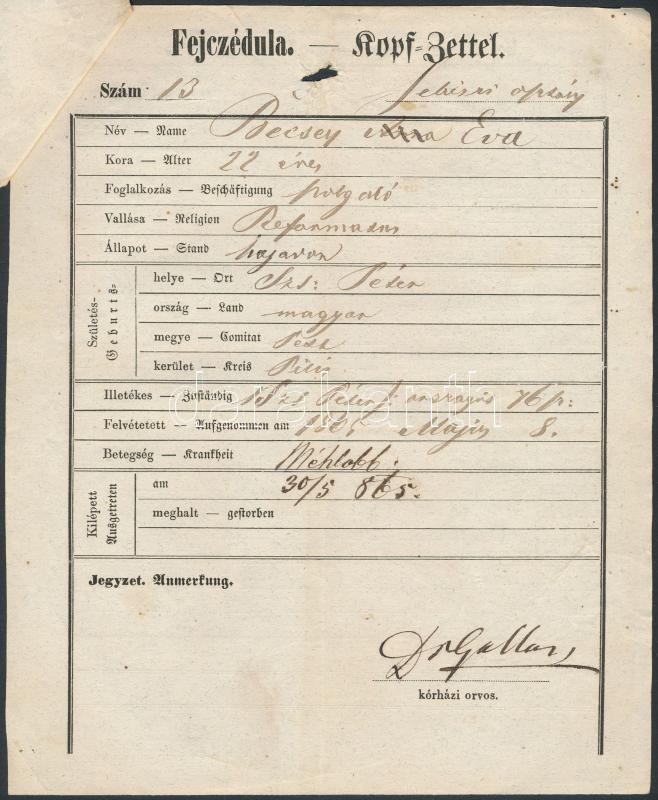 Fejczédula. — Kopf-Zettel.
Szám 13
Név — Name Becsey Éva
Kora — Alter 22 éves
Foglalkozás — Beschäftigung
Vallása — Religion Reformatus
Állapot — Stand hajadon
Születés-
Geburts-
helye — Ort Szt: Péter
ország — Land magyar
megye — Comitat Pest
kerület — Kreis Pilis
Illetékes — Zuständig Szt Péter
Felvétetett — Aufgenommen am Május 8.
Betegség — Krankheit Méhlobb.
Kilépett
Ausgetreten
am 30/5 865.
meghalt — gestorben
Jegyzet. Anmerkung.
kórházi orvos.
darabanth